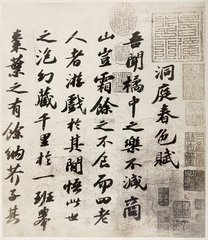 洞庭春色賦
吾聞橘中之樂不減商
山豈霜餘之不食而四老
人者遊戲於其間悟此世
之泡幻藏千里於一班舉
棗葉之有餘納芥子其